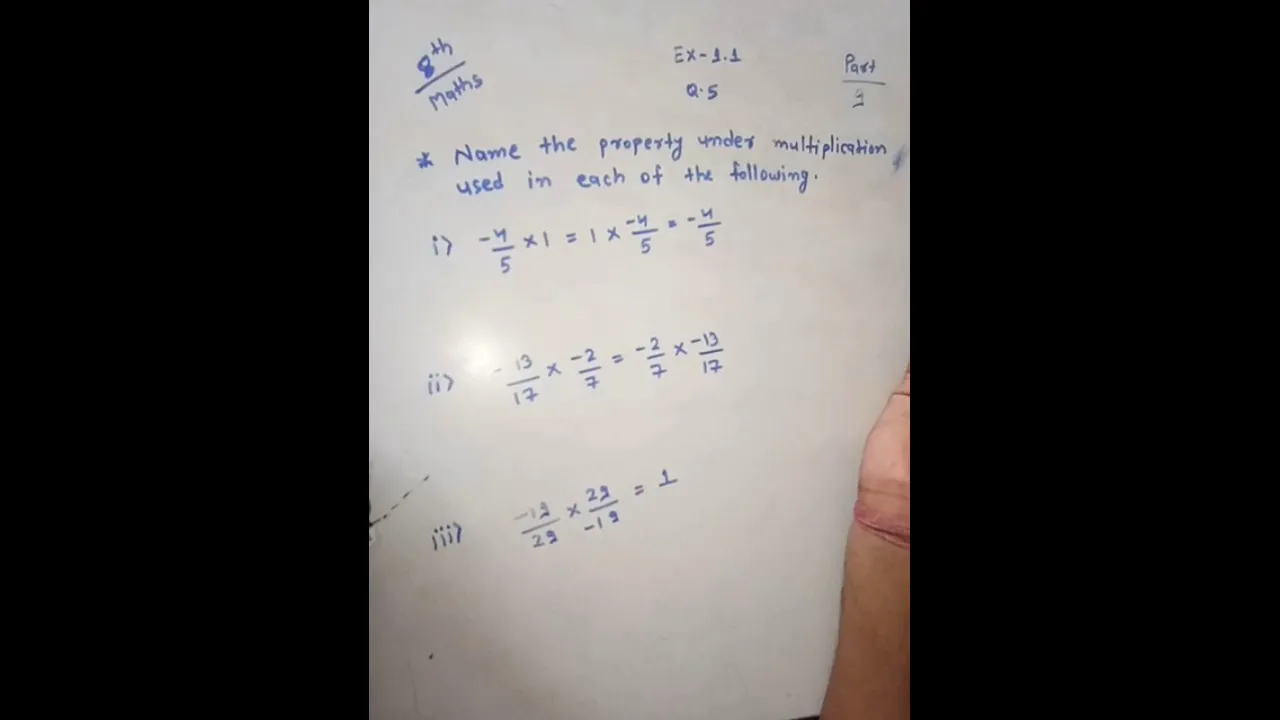 8th
Maths
Ex-1.1
Q.5
Part
9
* Name the property under multiplication
used in each of the following.
i) -4/5 × 1 = 1 × -4/5 = -4/5
ii) -13/17 × -2/7 = -2/7 × -13/17
iii) -19/29 × 29/-19 = 1